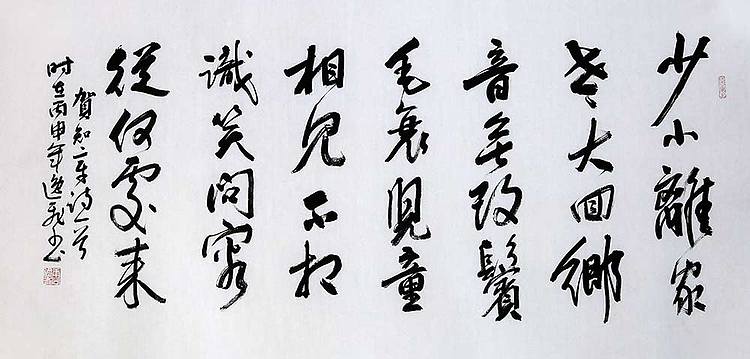 少小離家
老大回鄉
音無改鬢
毛衰兒童
相見不相
識笑問客
從何處來
賀知章詩一首
时在丙申年逸書